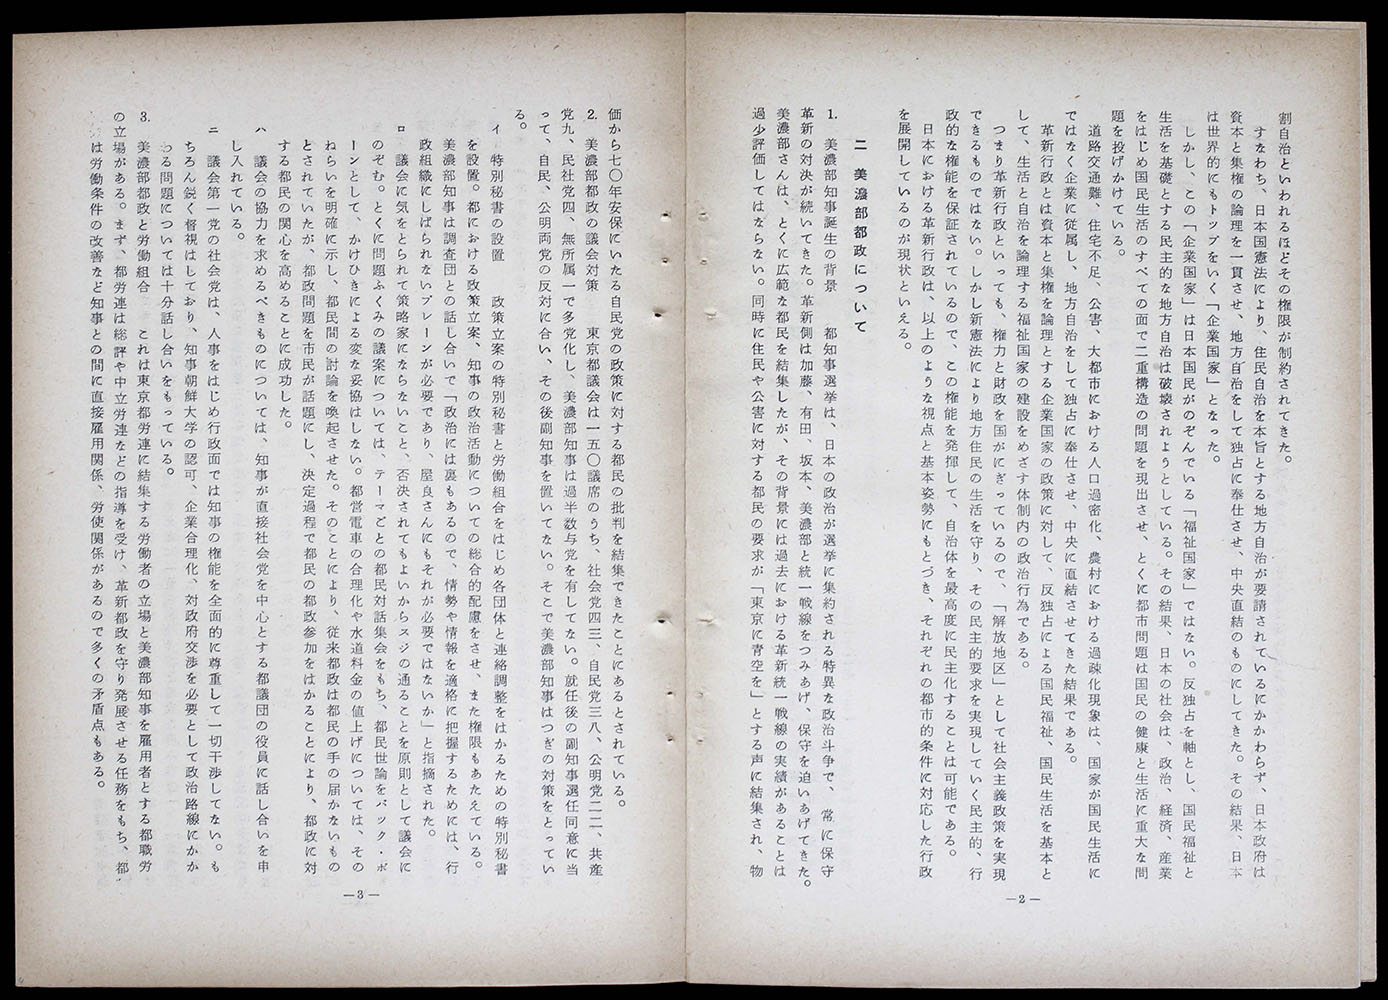 割自治といわれるほどその権限が制約されてきた。
すなわち、日本国憲法により、住民自治を本旨とする地方自治が要請されているにかかわらず、日本政府は
資本と集権の論理を一貫させ、地方自治をして独占に奉仕させ、中央直結のものにしてきた。その結果、日本
は世界的にもトップをいく「企業国家」となった。
しかし、この「企業国家」は日本国民がのぞんでいる「福祉国家」ではない。反独占を軸とし、国民福祉と
生活を基礎とする民主的な地方自治は破壊されようとしている。その結果、日本の社会は、政治、経済、産業
をはじめ国民生活のすべての面で二重構造の問題を現出させ、とくに都市問題は国民の健康と生活に重大な問
題を投げかけている。
道路交通難、住宅不足、公害、大都市における人口過密化、農村における過疎化現象は、国家が国民生活に
ではなく企業に従属し、地方自治をして独占に奉仕させ、中央に直結させてきた結果である。
革新行政とは資本と集権を論理とする企業国家の政策に対して、反独占による国民福祉、国民生活を基本と
して、生活と自治を論理する福祉国家の建設をめざす体制内の政治行為である。
つまり革新行政といっても、権力と財政を国がにぎっているので、「解放地区」として社会主義政策を実現
できるものではない。しかし新憲法により地方住民の生活を守り、その民主的要求を実現していく民主的、行
政的な権能を保証されているので、この権能を発揮して、自治体を最高度に民主化することは可能である。
日本における革新行政は、以上のような視点と基本姿勢にもとづき、それぞれの都市的条件に対応した行政
を展開しているのが現状といえる。
二 美濃部都政について
1. 美濃部知事誕生の背景 都知事選挙は、日本の政治が選挙に集約される特異な政治斗争で、常に保守
革新の対決が続いてきた。革新側は加藤、有田、坂本、美濃部と統一戦線をつみあげ、保守を追いあげてきた。
美濃部さんは、とくに広範な都民を結集したが、その背景には過去における革新統一戦線の実績があることは
過少評価してはならない。同時に住民や公害に対する都民の要求が「東京に青空を」とする声に結集され、物
—2—
価から七〇年安保にいたる自民党の政策に対する都民の批判を結集できたことにあるとされている。
2. 美濃部都政の議会対策 東京都議会は一五〇議席のうち、社会党四三、自民党三八、公明党二二、共産
党九、民社党四、無所属一で多党化し、美濃部知事は過半数与党を有してない。就任後の副知事選任同意に当
って、自民、公明両党の反対に合い、その後副知事を置いてない。そこで美濃部知事はつぎの対策をとってい
る。
イ 特別秘書の設置 政策立案の特別秘書と労働組合をはじめ各団体と連絡調整をはかるための特別秘書
を設置。都における政策立案、知事の政治活動についての総合的配慮をさせ、また権限もあたえている。
美濃部知事は調査団との話し合いで「政治には裏もあるので、情勢や情報を適格に把握するためには、行
政組織にしばられないブレーンが必要であり、屋良さんにもそれが必要ではないか」と指摘された。
ロ 議会に気をとられて策略家にならないこと、否決されてもよいからスジの通ることを原則として議会に
のぞむ。とくに問題ふくみの議案については、テーマごとの都民対話集会をもち、都民世論をバック・ボ
ーンとして、かけひきによる変な妥協はしない。都営電車の合理化や水道料金の値上げについては、その
ねらいを明確に示し、都民間の討論を喚起させた。そのことにより、従来都政は都民の手の届かないもの
とされていたが、都政問題を市民が話題にし、決定過程で都民の都政参加をはかることにより、都政に対
する都民の関心を高めることに成功した。
ハ 議会の協力を求めるべきものについては、知事が直接社会党を中心とする都議団の役員に話し合いを申
し入れている。
ニ 議会第一党の社会党は、人事をはじめ行政面では知事の権能を全面的に尊重して一切干渉してない。も
ちろん鋭く督視はしており、知事朝鮮大学の認可、企業合理化、対政府交渉を必要として政治路線にかか
わる問題については十分話し合いをもっている。
3. 美濃部都政と労働組合 これは東京都労連に結集する労働者の立場と美濃部知事を雇用者とする都職労
の立場がある。まず、都労連は総評や中立労連などの指導を受け、革新都政を守り発展させる任務をもち、都
は労働条件の改善など知事との間に直接雇用関係、労使関係があるので多くの矛盾点もある。
—3—